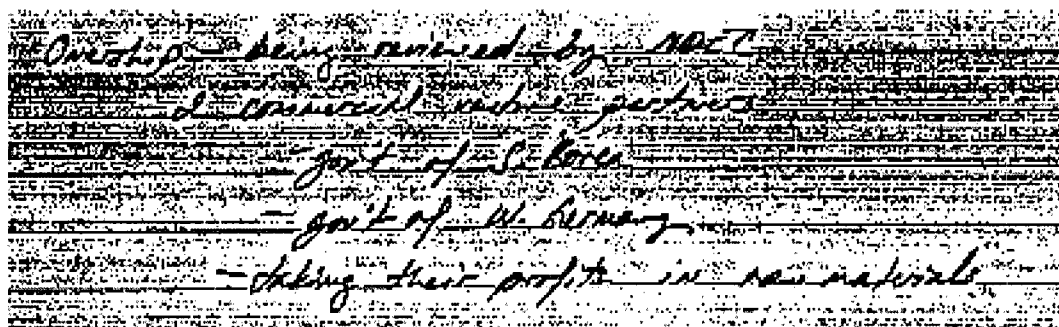 Owership - being reviewed by
- 2 commercial venture partners
- gov't of S. Korea
- gov't of W. Germany
- taking their profits in raw materials